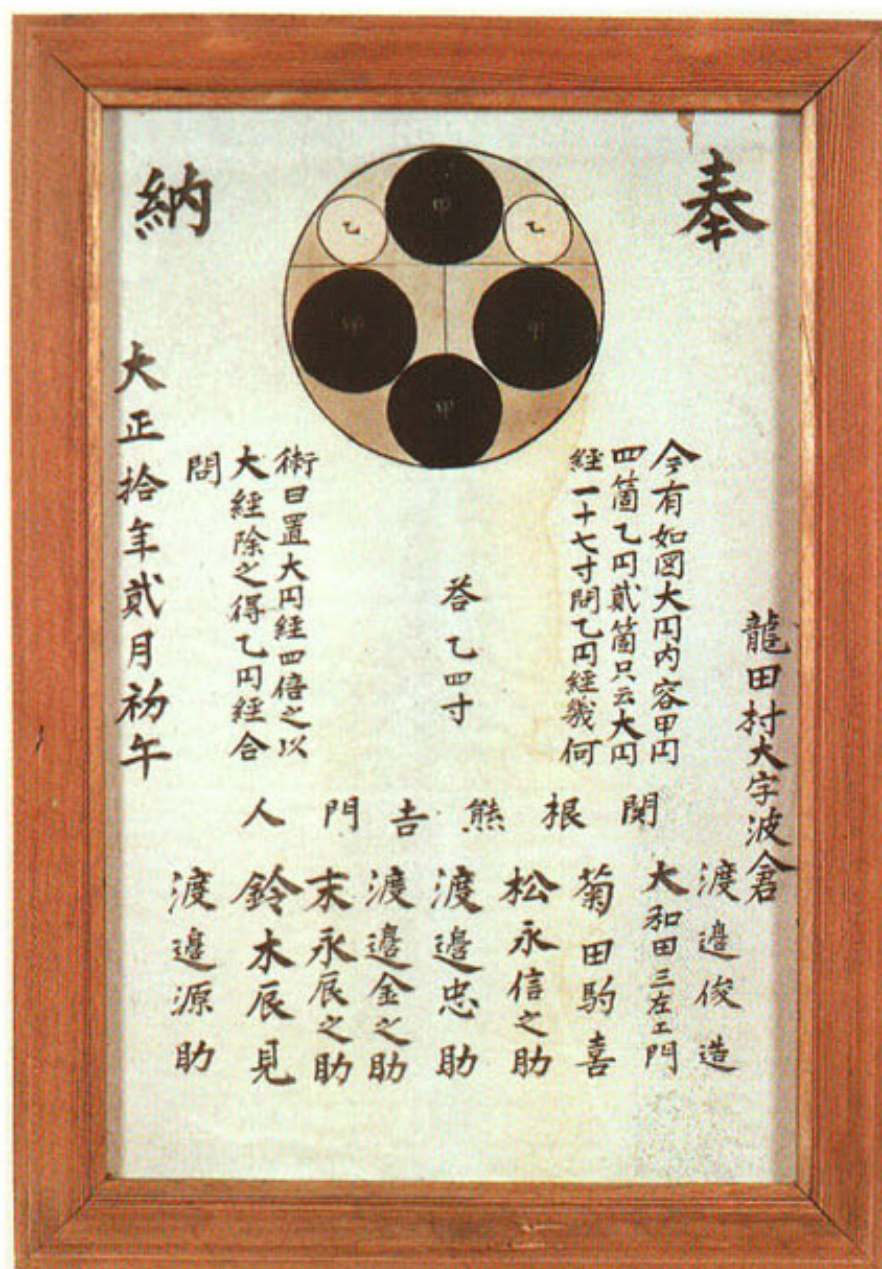 奉
納
甲
乙
乙
甲
甲
甲
龍田村大字波倉
今有如図大円内容甲円
四箇乙円貳箇只云大円
経一十七寸問乙円経幾何
答乙四寸
術曰置大円経四倍之以
大経除之得乙円経合
問
大正拾年貳月初午
関根熊吉門人
渡邊俊造
大和田三左エ門
菊田駒喜
松永信之助
渡邊忠助
渡邊金之助
末永辰之助
鈴木辰見
渡邊源助